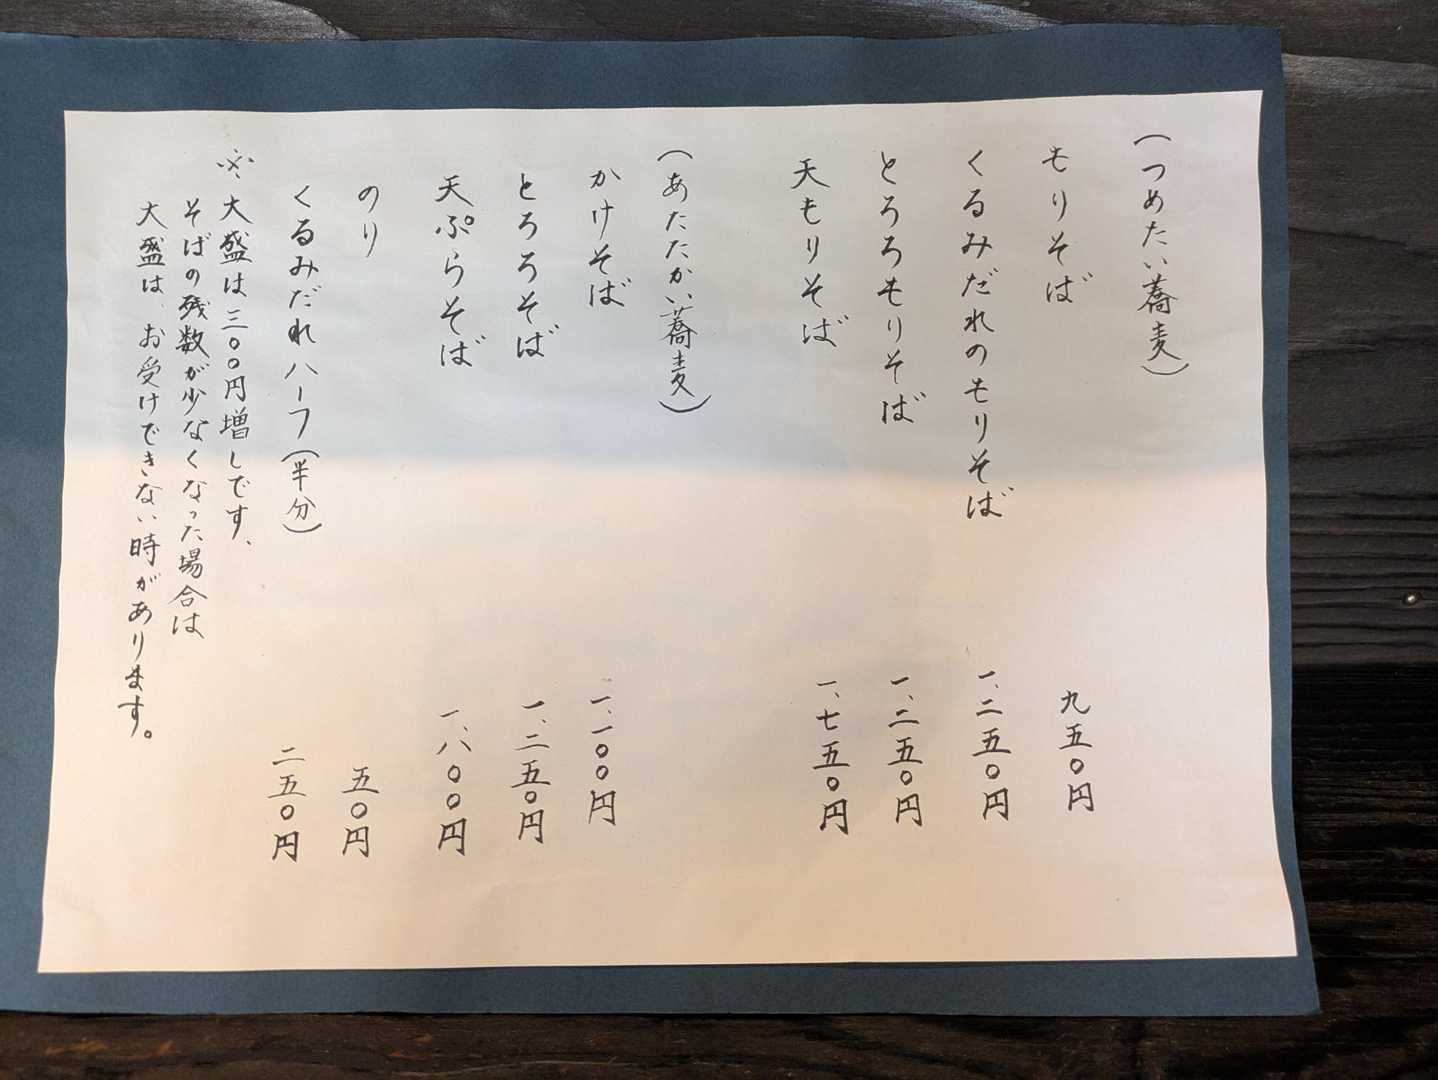 （つめたい蕎麦）
もりそば 九五〇円
くるみだれのもりそば 一、二五〇円
とろろもりそば 一、二五〇円
天もりそば 一、七五〇円
（あたたかい蕎麦）
かけそば 一、一〇〇円
とろろそば 一、二五〇円
天ぷらそば 一、八〇〇円
のり 五〇円
くるみだれハーフ（半分） 二五〇円
※大盛は三〇〇円増しです、
そばの残数が少なくなった場合は
大盛は、お受けできない時があります。